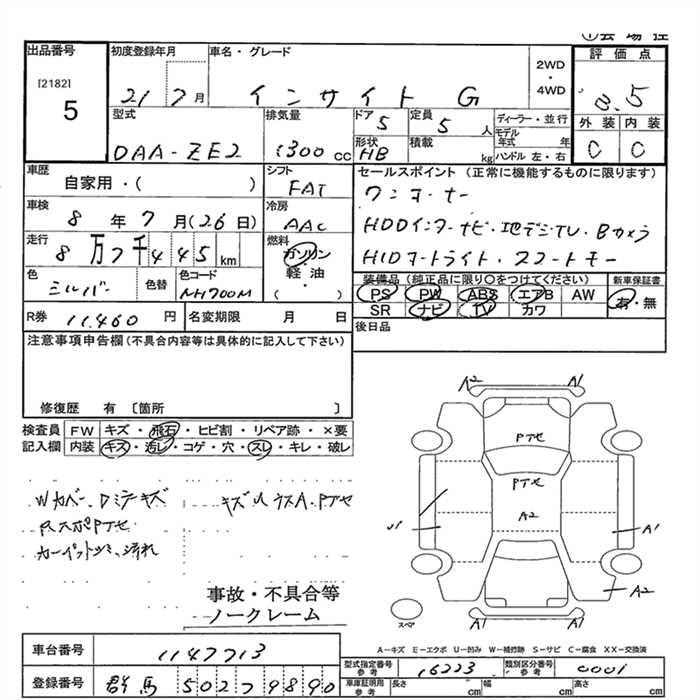 ①会場控
出品番号
[2182]
5
初度登録年月
21 7月
車名・グレード
インサイト G
2WD
・
4WD
評価点
3.5
外装 内装
C C
型式
DAA-ZE2
排気量
1300cc
ドア 5
形状 HB
定員 5人
積載 kg
ディーラー・並行
モデル年式 年
ハンドル 左・右
車歴
自家用・( )
シフト
FAT
車検
8年7月(26日)
冷房
AAC
走行
8万7千445km
燃料
ガソリン
・
軽油
・
( )
色
シルバー
色替
色コード
NH700M
セールスポイント(正常に機能するものに限ります)
ワンオーナー
HDDインターナビ・地デジTV・Bカメラ
HIDオートライト・スマートキー
装備品(純正品に限り○をつけてください)
PS PW ABS エアB AW
SR ナビ TV カワ
新車保証書
有・無
R券 11,460円
名変期限 月 日
後日品
注意事項申告欄(不具合内容等は具体的に記入して下さい)
修復歴 有 [箇所 ]
検査員 FW キズ・飛石・ヒビ割・リペア跡・×要
記入欄 内装 キズ・汚レ・コゲ・穴・スレ・キレ・破レ
Wカバー・Dミラーキズ
RスポPTセ
カーペットシミ、汚れ
キズUウスA・PTセ
事故・不具合等
ノークレーム
A2 A1
PTセ
PTセ
A2
U1
A1
A2
A1 A1
スペア
A-キズ E-エクボ U-凹み W-補修跡 S-サビ C-腐食 XX-交換済
車台番号 1147713
登録番号 群馬 502 ワ 9890
型式指定番号 参考 16223
類別区分番号 参考 0001
車庫証明用 参考 長さ cm 幅 cm 高さ cm